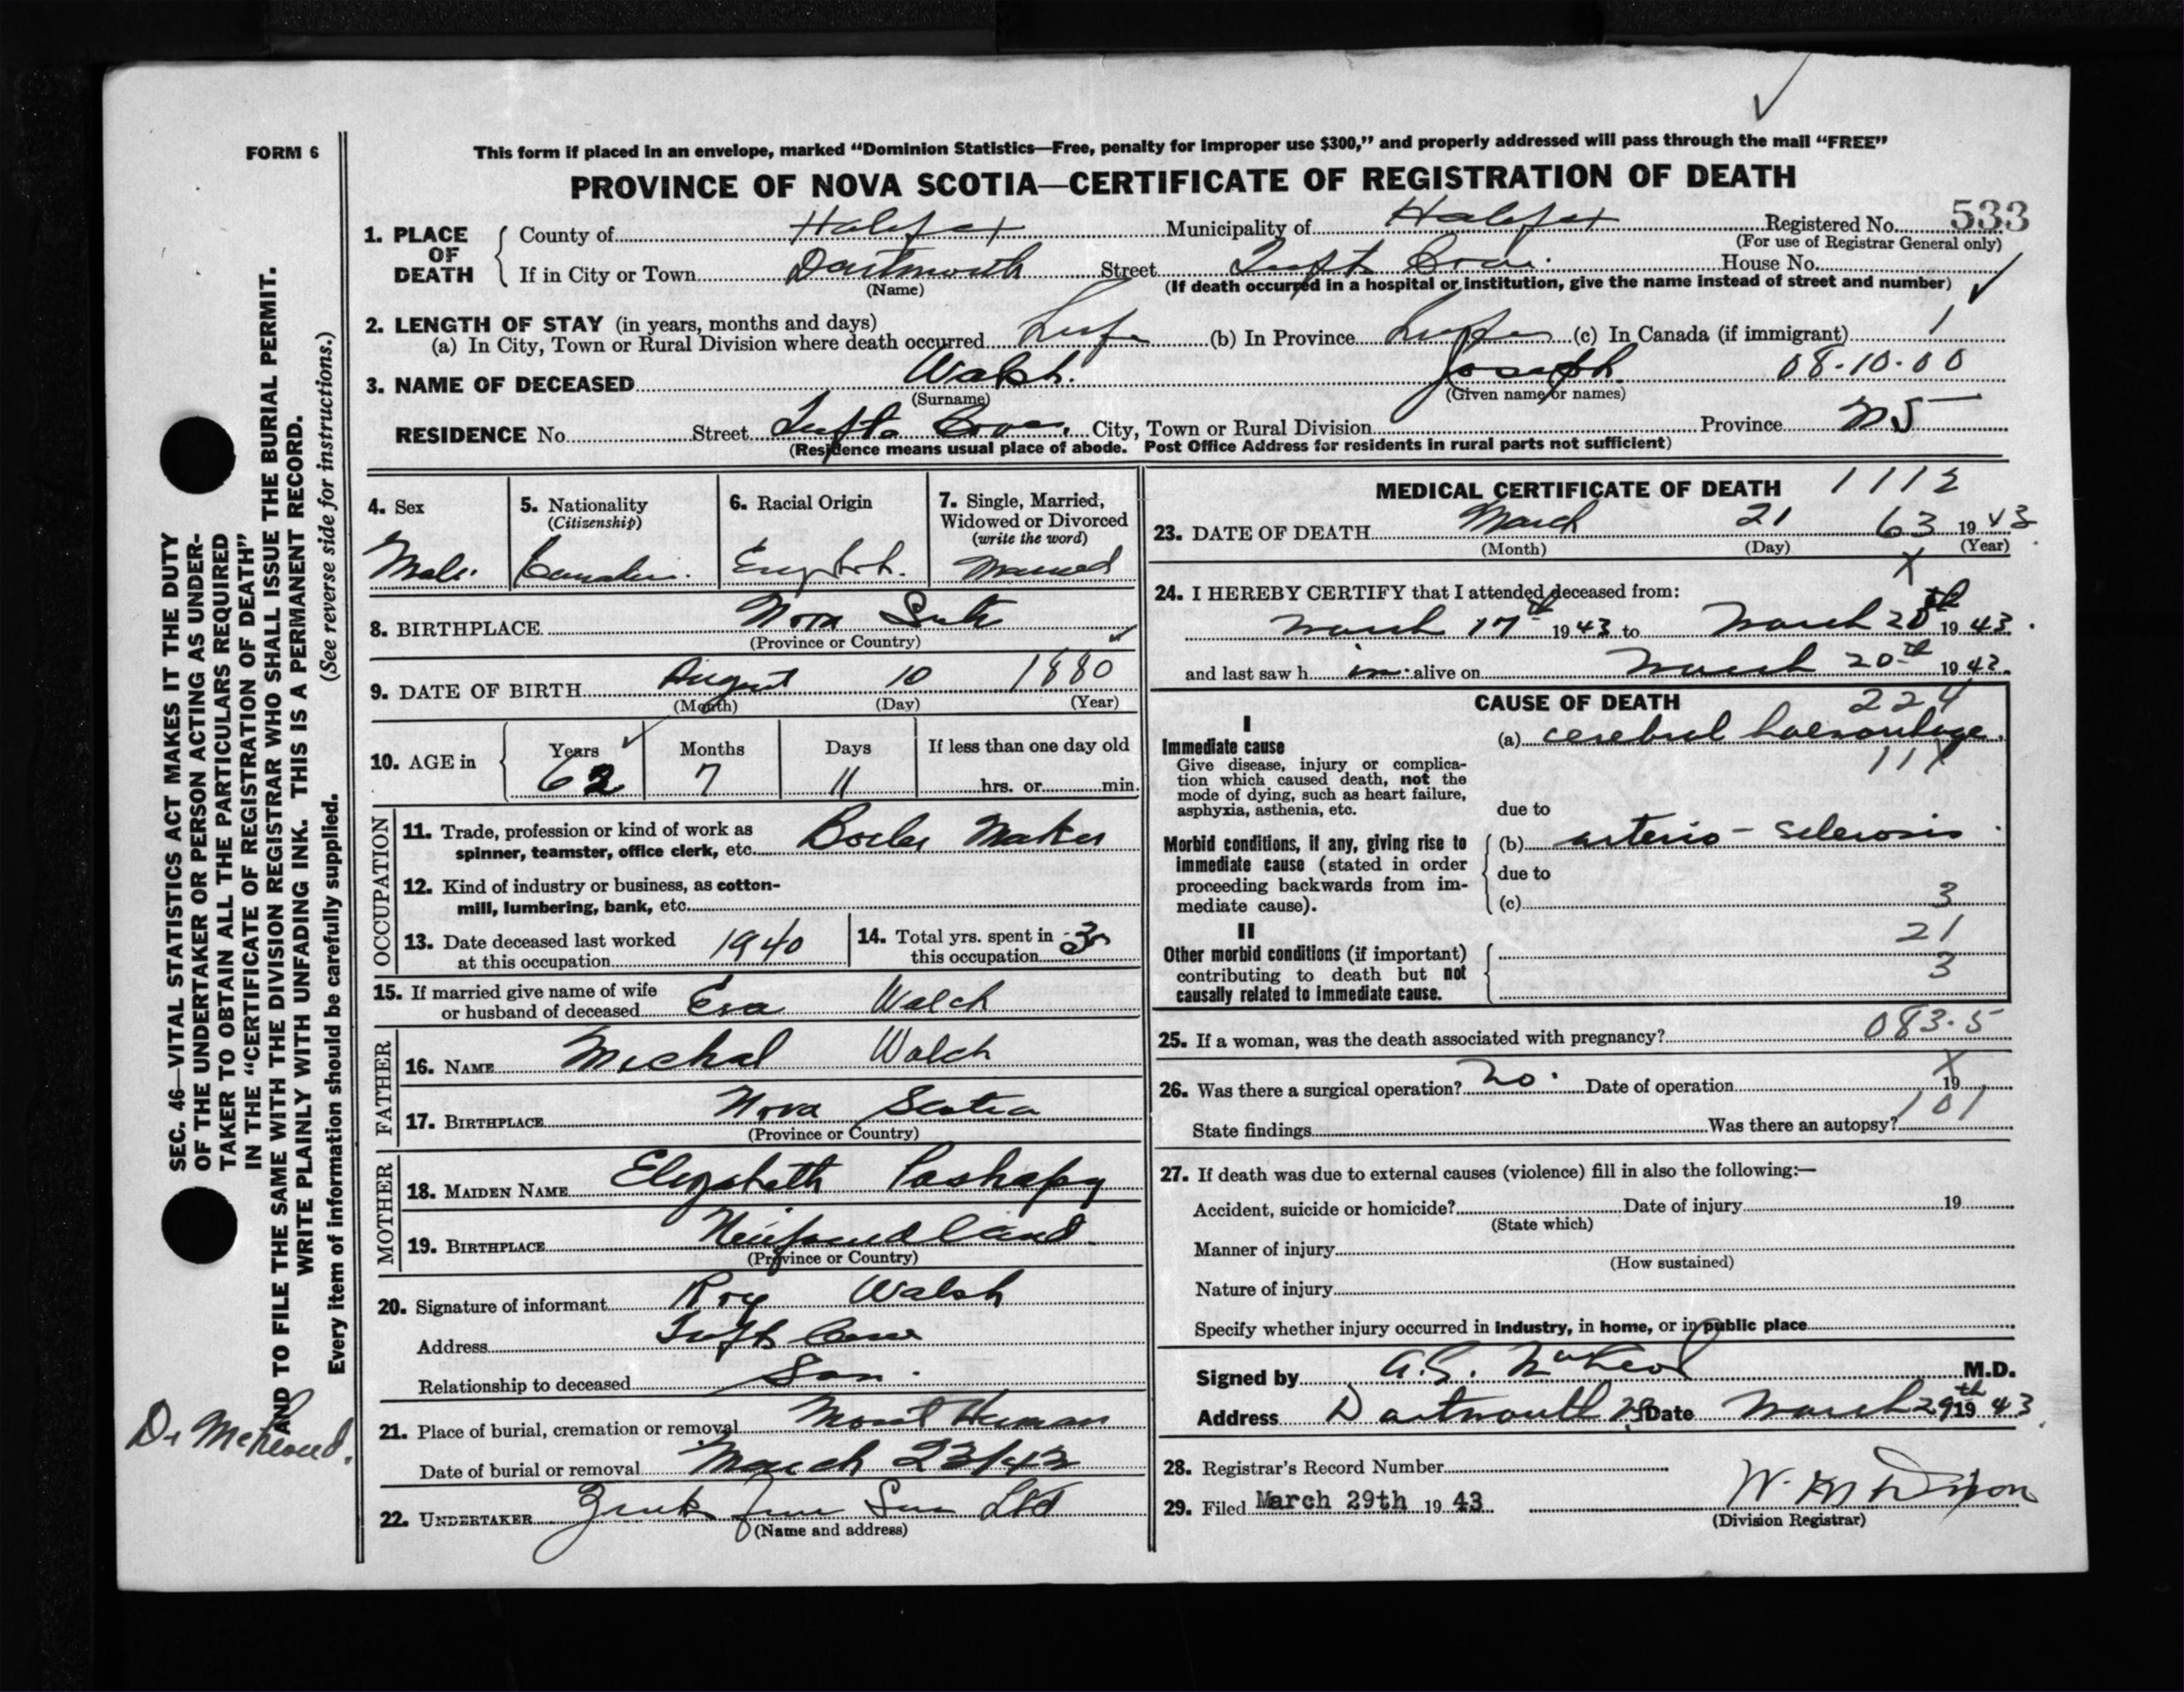 FORM 6
This form if placed in an envelope, marked “Dominion Statistics—Free, penalty for improper use $300,” and properly addressed will pass through the mail “FREE”
PROVINCE OF NOVA SCOTIA—CERTIFICATE OF REGISTRATION OF DEATH
1. PLACE OF DEATH County of Halifax Municipality of Halifax Registered No. 533
(For use of Registrar General only)
If in City or Town Dartmouth Street Tufts Cove. House No.
(Name) (If death occurred in a hospital or institution, give the name instead of street and number)
2. LENGTH OF STAY (in years, months and days)
(a) In City, Town or Rural Division where death occurred Life (b) In Province Life (c) In Canada (if immigrant) 1
3. NAME OF DECEASED Walsh. Joseph 08-10-00
(Surname) (Given name or names)
RESIDENCE No. Street Tufts Cove, City, Town or Rural Division Province NS
(Residence means usual place of abode. Post Office Address for residents in rural parts not sufficient)
4. Sex
Male.
5. Nationality
(Citizenship)
6. Racial Origin
English.
7. Single, Married, Widowed or Divorced
(write the word)
Married
8. BIRTHPLACE Nova
(Province or Country)
9. DATE OF BIRTH August 10 1880
(Month) (Day) (Year)
10. AGE in Years Months Days If less than one day old
62 7 11 hrs. or min.
OCCUPATION
11. Trade, profession or kind of work as
spinner, teamster, office clerk, etc. Boiler Maker
12. Kind of industry or business, as cotton-
mill, lumbering, bank, etc.
13. Date deceased last worked
at this occupation 1940
14. Total yrs. spent in
this occupation
15. If married give name of wife
or husband of deceased Eva Walch
FATHER
16. NAME Michal Walch
17. BIRTHPLACE Nova Scotia
(Province or Country)
MOTHER
18. MAIDEN NAME Elizabeth
19. BIRTHPLACE Newfoundland
(Province or Country)
20. Signature of informant Roy Walsh
Address Tufts Cove
Relationship to deceased Son.
21. Place of burial, cremation or removal Mount Herman
Date of burial or removal March 23/43
22. UNDERTAKER Ltd
(Name and address)
MEDICAL CERTIFICATE OF DEATH 1112
23. DATE OF DEATH March 21 63 1943
(Month) (Day) (Year)
X
24. I HEREBY CERTIFY that I attended deceased from:
March 17th 1943 to March 20th 1943.
and last saw h im alive on March 20th 1943.
CAUSE OF DEATH 224
I
Immediate cause (a) cerebral haemorrhage.
Give disease, injury or complica-
tion which caused death, not the
mode of dying, such as heart failure,
asphyxia, asthenia, etc. due to
Morbid conditions, if any, giving rise to (b) arterio-sclerosis.
immediate cause (stated in order due to
proceeding backwards from im-
mediate cause). (c) 3
II 21
Other morbid conditions (if important)
contributing to death but not 3
causally related to immediate cause.
25. If a woman, was the death associated with pregnancy? 083.5
26. Was there a surgical operation? No. Date of operation X 19
State findings Was there an autopsy? 101
27. If death was due to external causes (violence) fill in also the following:—
Accident, suicide or homicide? Date of injury 19
(State which)
Manner of injury
(How sustained)
Nature of injury
Specify whether injury occurred in industry, in home, or in public place
Signed by A.G. McLeod M.D.
Address Dartmouth Date March 29th 1943.
28. Registrar's Record Number
29. Filed March 29th 1943
(Division Registrar)
SEC. 46—VITAL STATISTICS ACT MAKES IT THE DUTY
OF THE UNDERTAKER OR PERSON ACTING AS UNDER-
TAKER TO OBTAIN ALL THE PARTICULARS REQUIRED
IN THE “CERTIFICATE OF REGISTRATION OF DEATH”
AND TO FILE THE SAME WITH THE DIVISION REGISTRAR WHO SHALL ISSUE THE BURIAL PERMIT.
WRITE PLAINLY WITH UNFADING INK. THIS IS A PERMANENT RECORD.
Every item of information should be carefully supplied. (See reverse side for instructions.)
Dr McLeod.